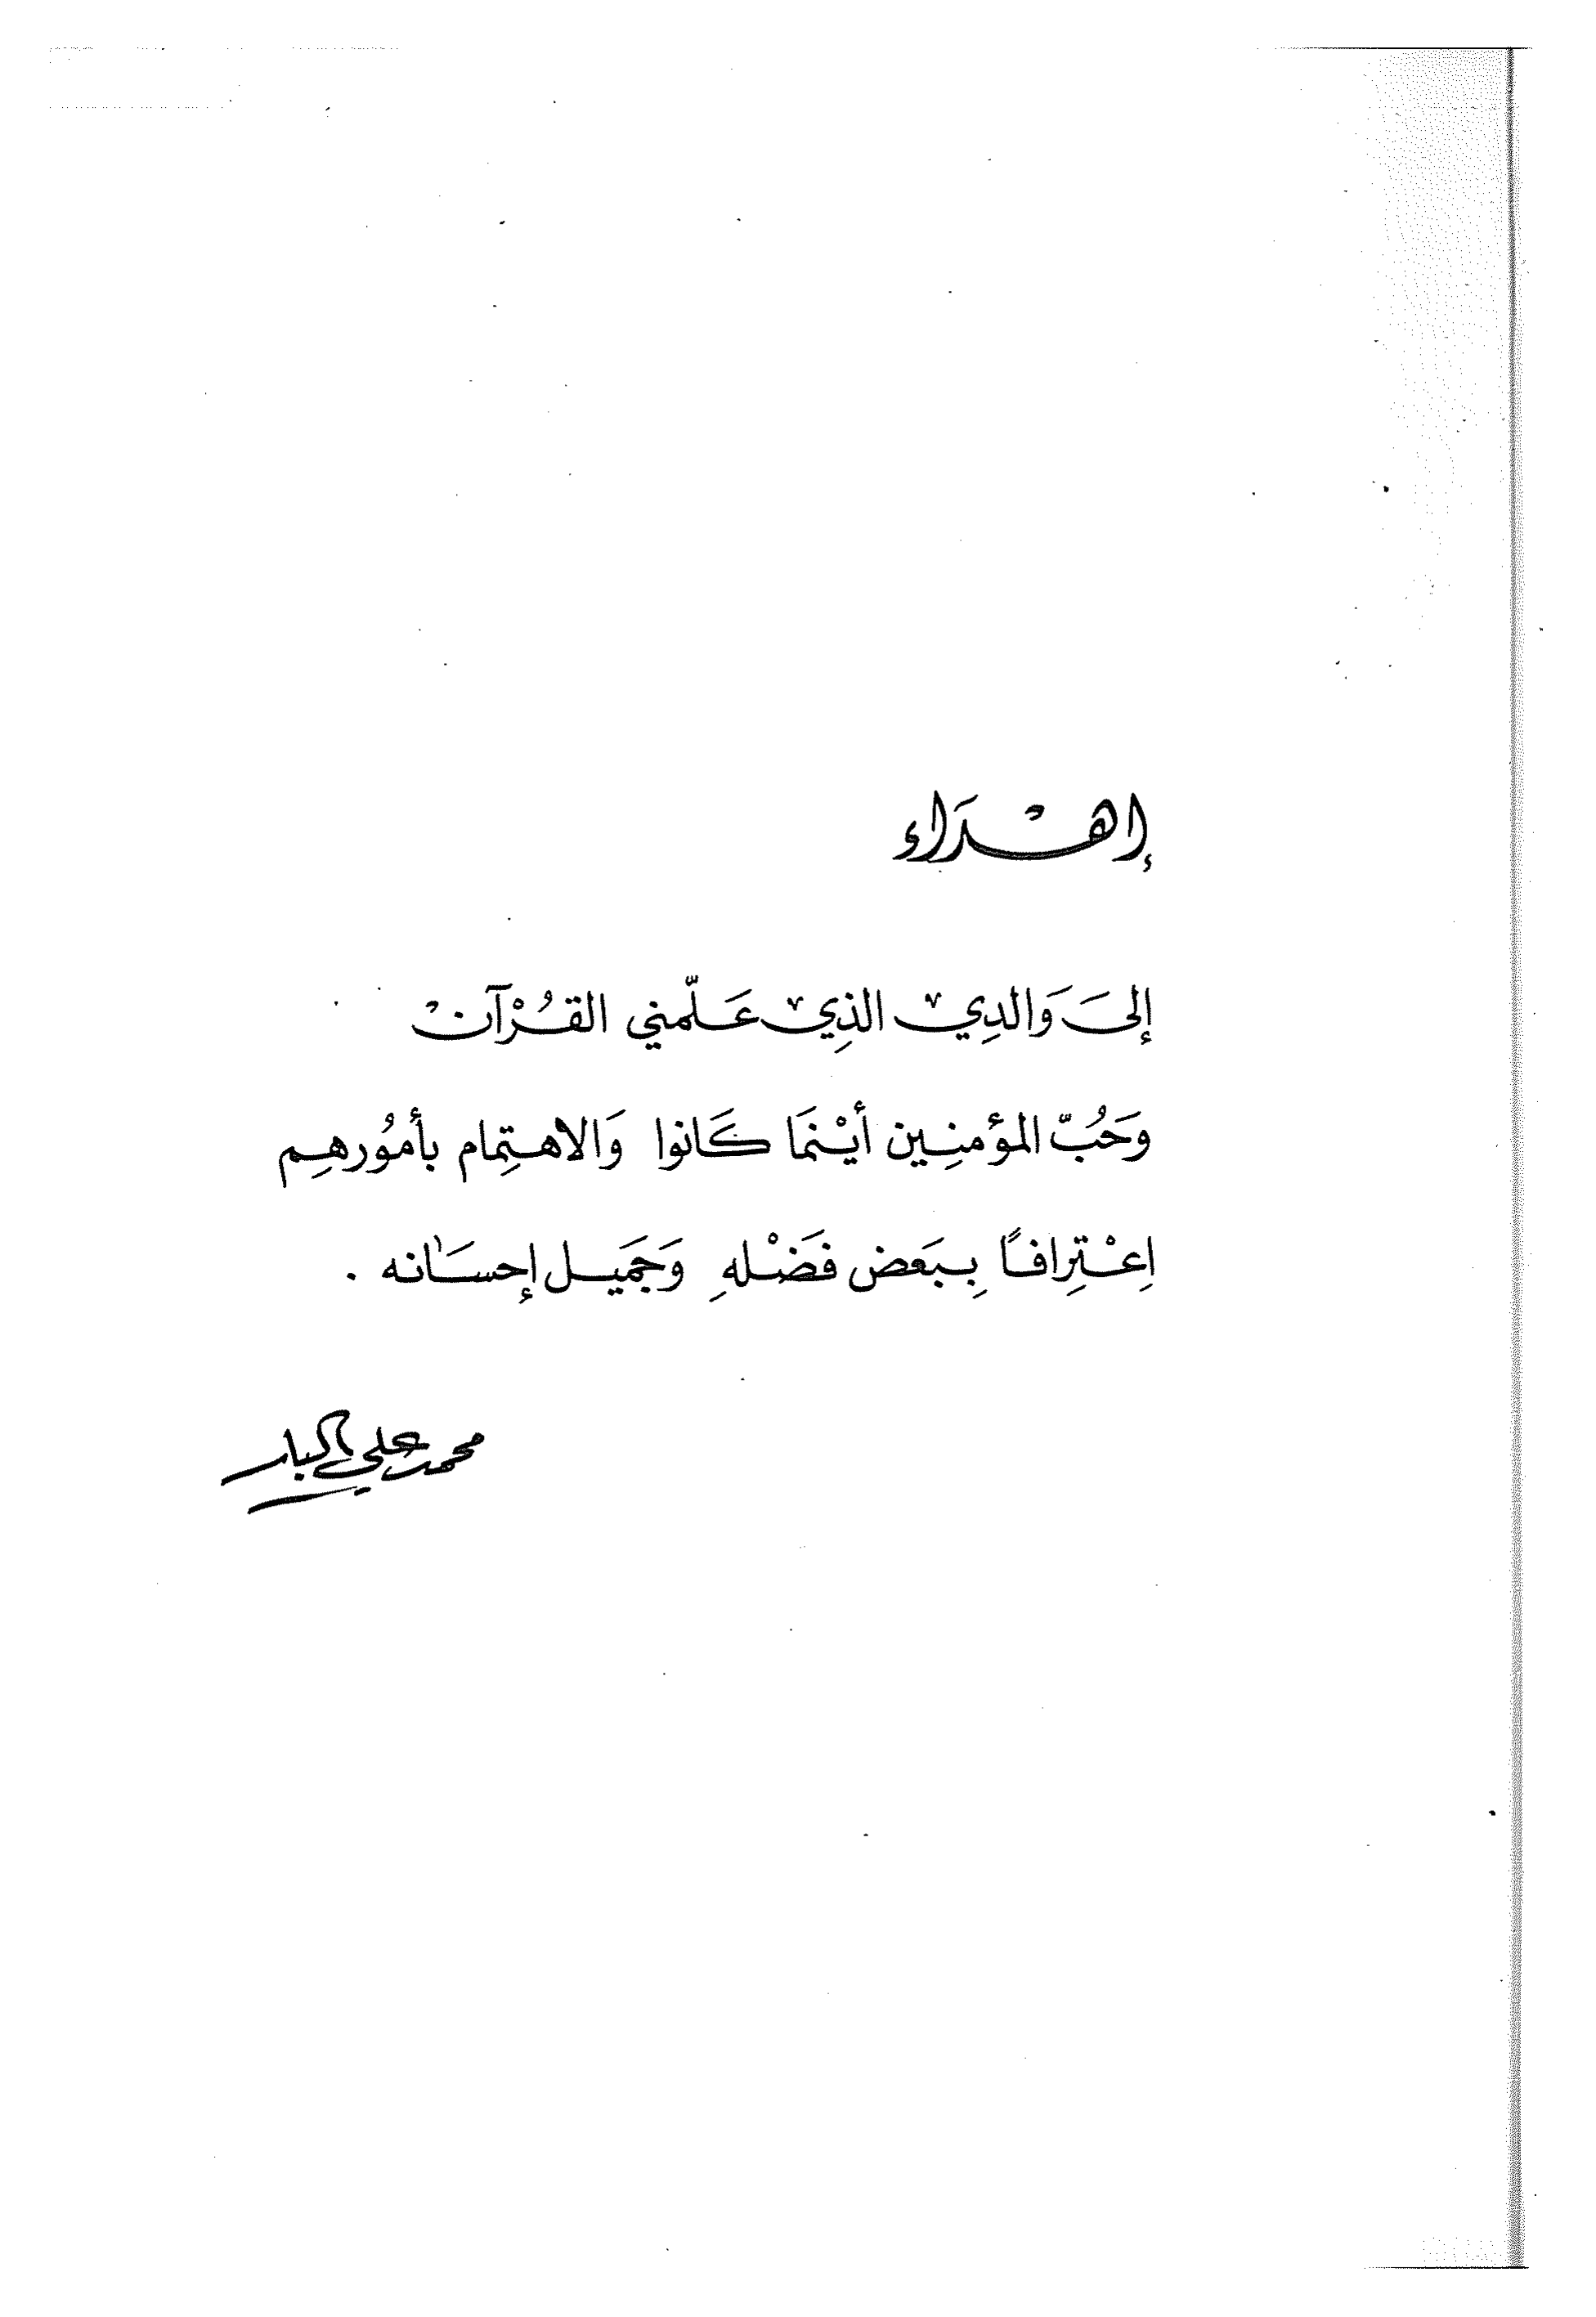 إهْدَاء
إلىَ وَالدِيْ الذِيْ عَلّمني القُرْآنْ
وَحُبّ المؤمنِين أيْنمَا كَانوا وَالاهتِمام بأمُورهِم
اِعْتِرافًا بِبَعض فَضْلهِ وَجَميل إحسَانه .
محمد علي البار